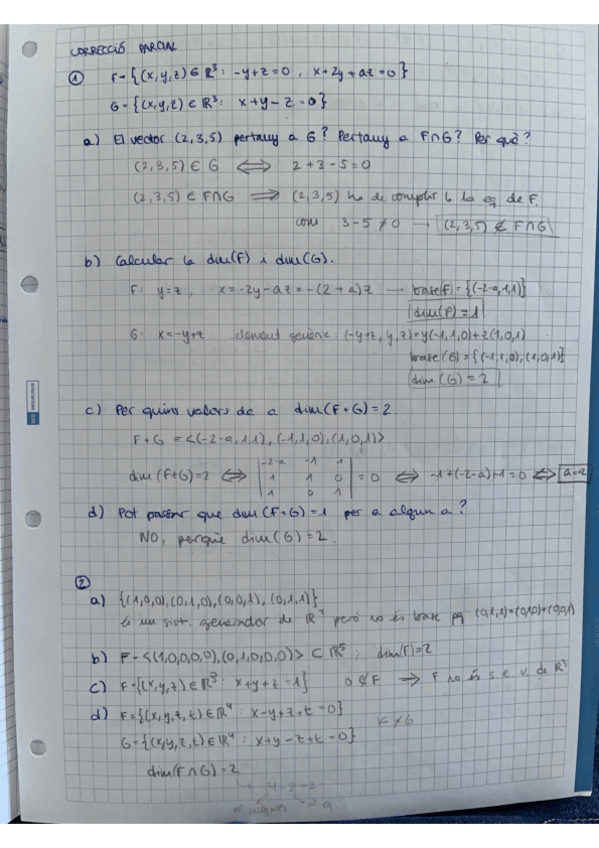 CORRECCIÓ PARCIAL
① F={(x,y,z)∈ℝ³: -y+z=0, x+2y+az=0}
G={(x,y,z)∈ℝ³: x+y-z=0}
a) El vector (2,3,5) pertany a G? Pertany a F∩G? Per què?
(2,3,5)∈G ⟺ 2+3-5=0
(2,3,5)∈F∩G ⟹ (2,3,5) ha de complir la eq de F.
com 3-5≠0 → (2,3,5)∉F∩G
b) Calcular la dim(F) i dim(G).
F: y=z, x=-2y-az=-(2+a)z → base(F)={(-2-a,1,1)}
dim(F)=1
G: x=-y+z element genèric: (-y+z,y,z)=y(-1,1,0)+z(1,0,1)
base(G)={(-1,1,0),(1,0,1)}
dim(G)=2
c) Per quins valors de a dim(F+G)=2
F+G=<(-2-a,1,1),(-1,1,0),(1,0,1)>
-2-a -1 1
dim(F+G)=2 ⟺ 1 1 0 =0 ⟺ -1+(-2-a)+1=0 ⟺ a=-2
1 0 1
d) Pot passar que dim(F+G)=1 per a algun a?
NO, perquè dim(G)=2.
MIQUELRIUS
②
a) {(1,0,0),(0,1,0),(0,0,1),(0,1,1)}
és un sist. generador de ℝ³ però no és base pq (0,1,1)=(0,1,0)+(0,0,1)
b) F=<(1,0,0,0,0),(0,1,0,0,0)>⊂ℝ⁵, dim(F)=2
c) F={(x,y,z)∈ℝ³: x+y+z=1} 0∉F → F no és s.e.v. de ℝ³
d) F={(x,y,z,t)∈ℝ⁴: x-y+z+t=0}
F≠G
G={(x,y,z,t)∈ℝ⁴: x+y-z+t=0}
dim(F∩G)=2
4-2=2
nº eq